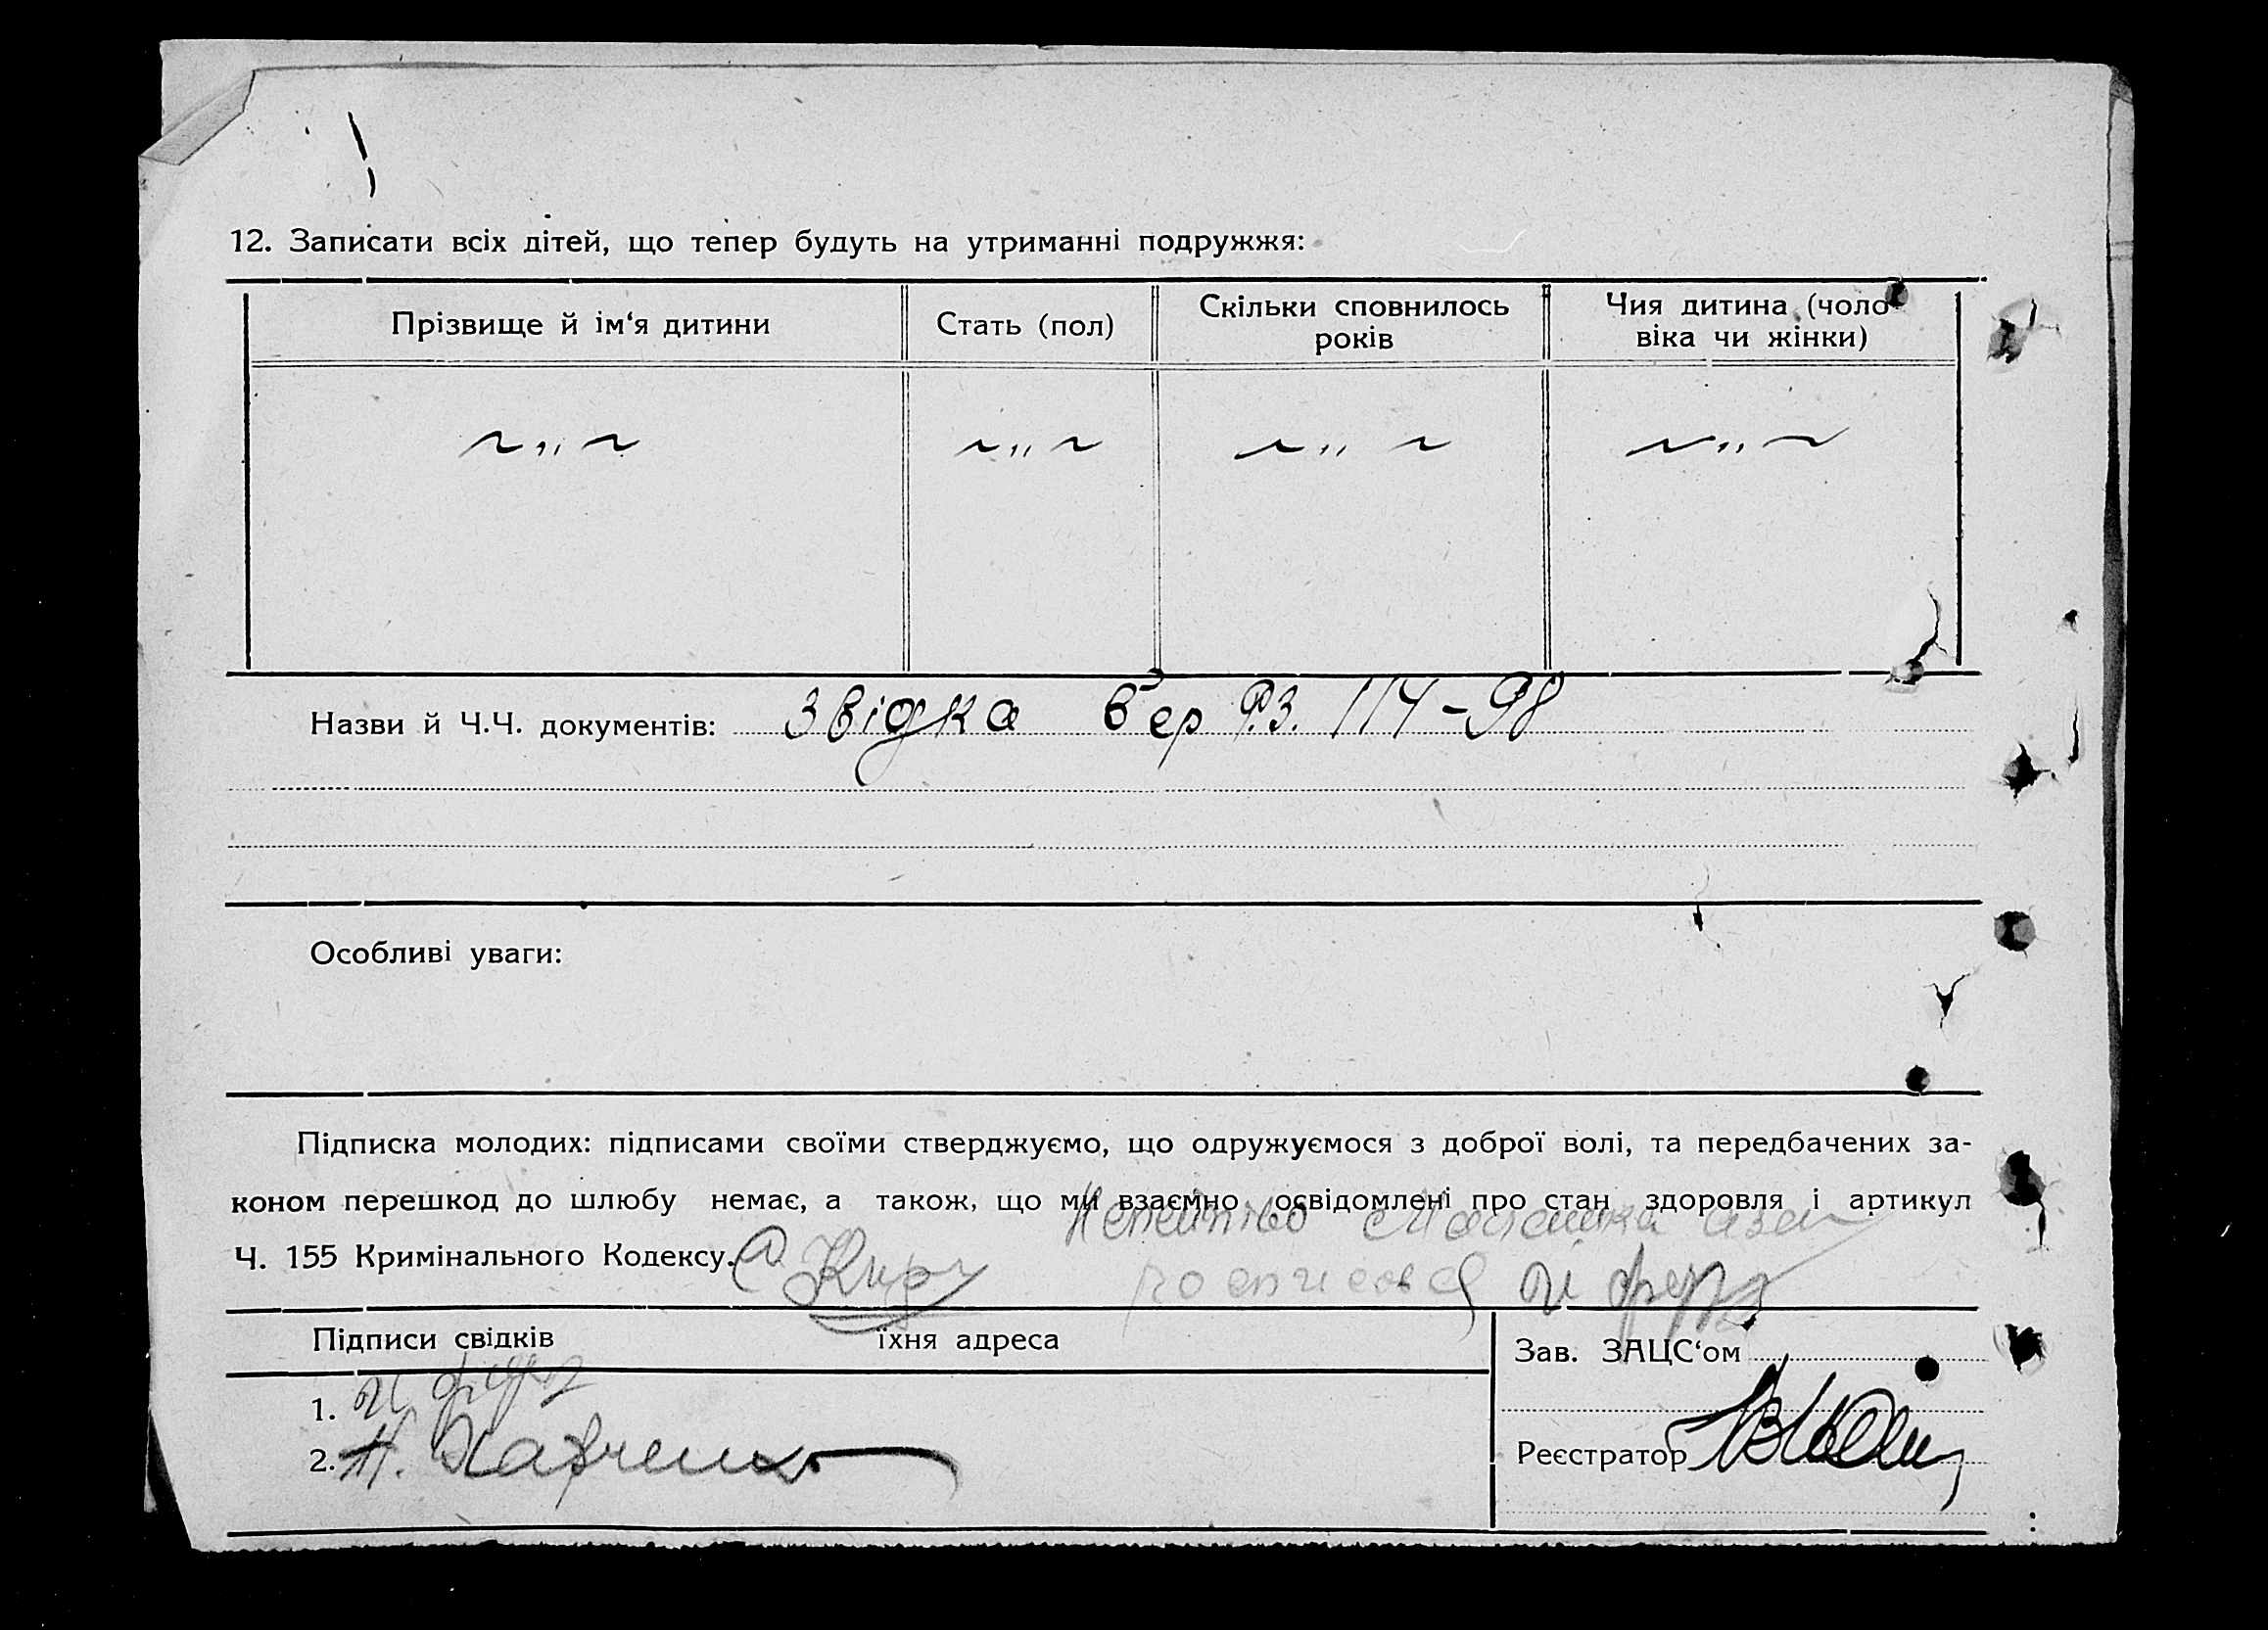 12. Записати всіх дітей, що тепер будуть на утриманні подружжя:
Прізвище й ім‘я дитини
Стать (пол)
Скільки сповнилось
років
Чия дитина (чоло
віка чи жінки)
~ „ ~ ~ „ ~ ~ „ ~ ~ „ ~
Назви й Ч.Ч. документів: Звідка 114-98
Особливі уваги:
Підписка молодих: підписами своїми стверджуємо, що одружуємося з доброї волі, та передбачених за-
коном перешкод до шлюбу немає, а також, що ми взаємно освідомлені про стан здоровля і артикул
Ч. 155 Кримінального Кодексу.
Підписи свідків
їхня адреса
1.
2.
Зав. ЗАЦС‘ом
Реєстратор